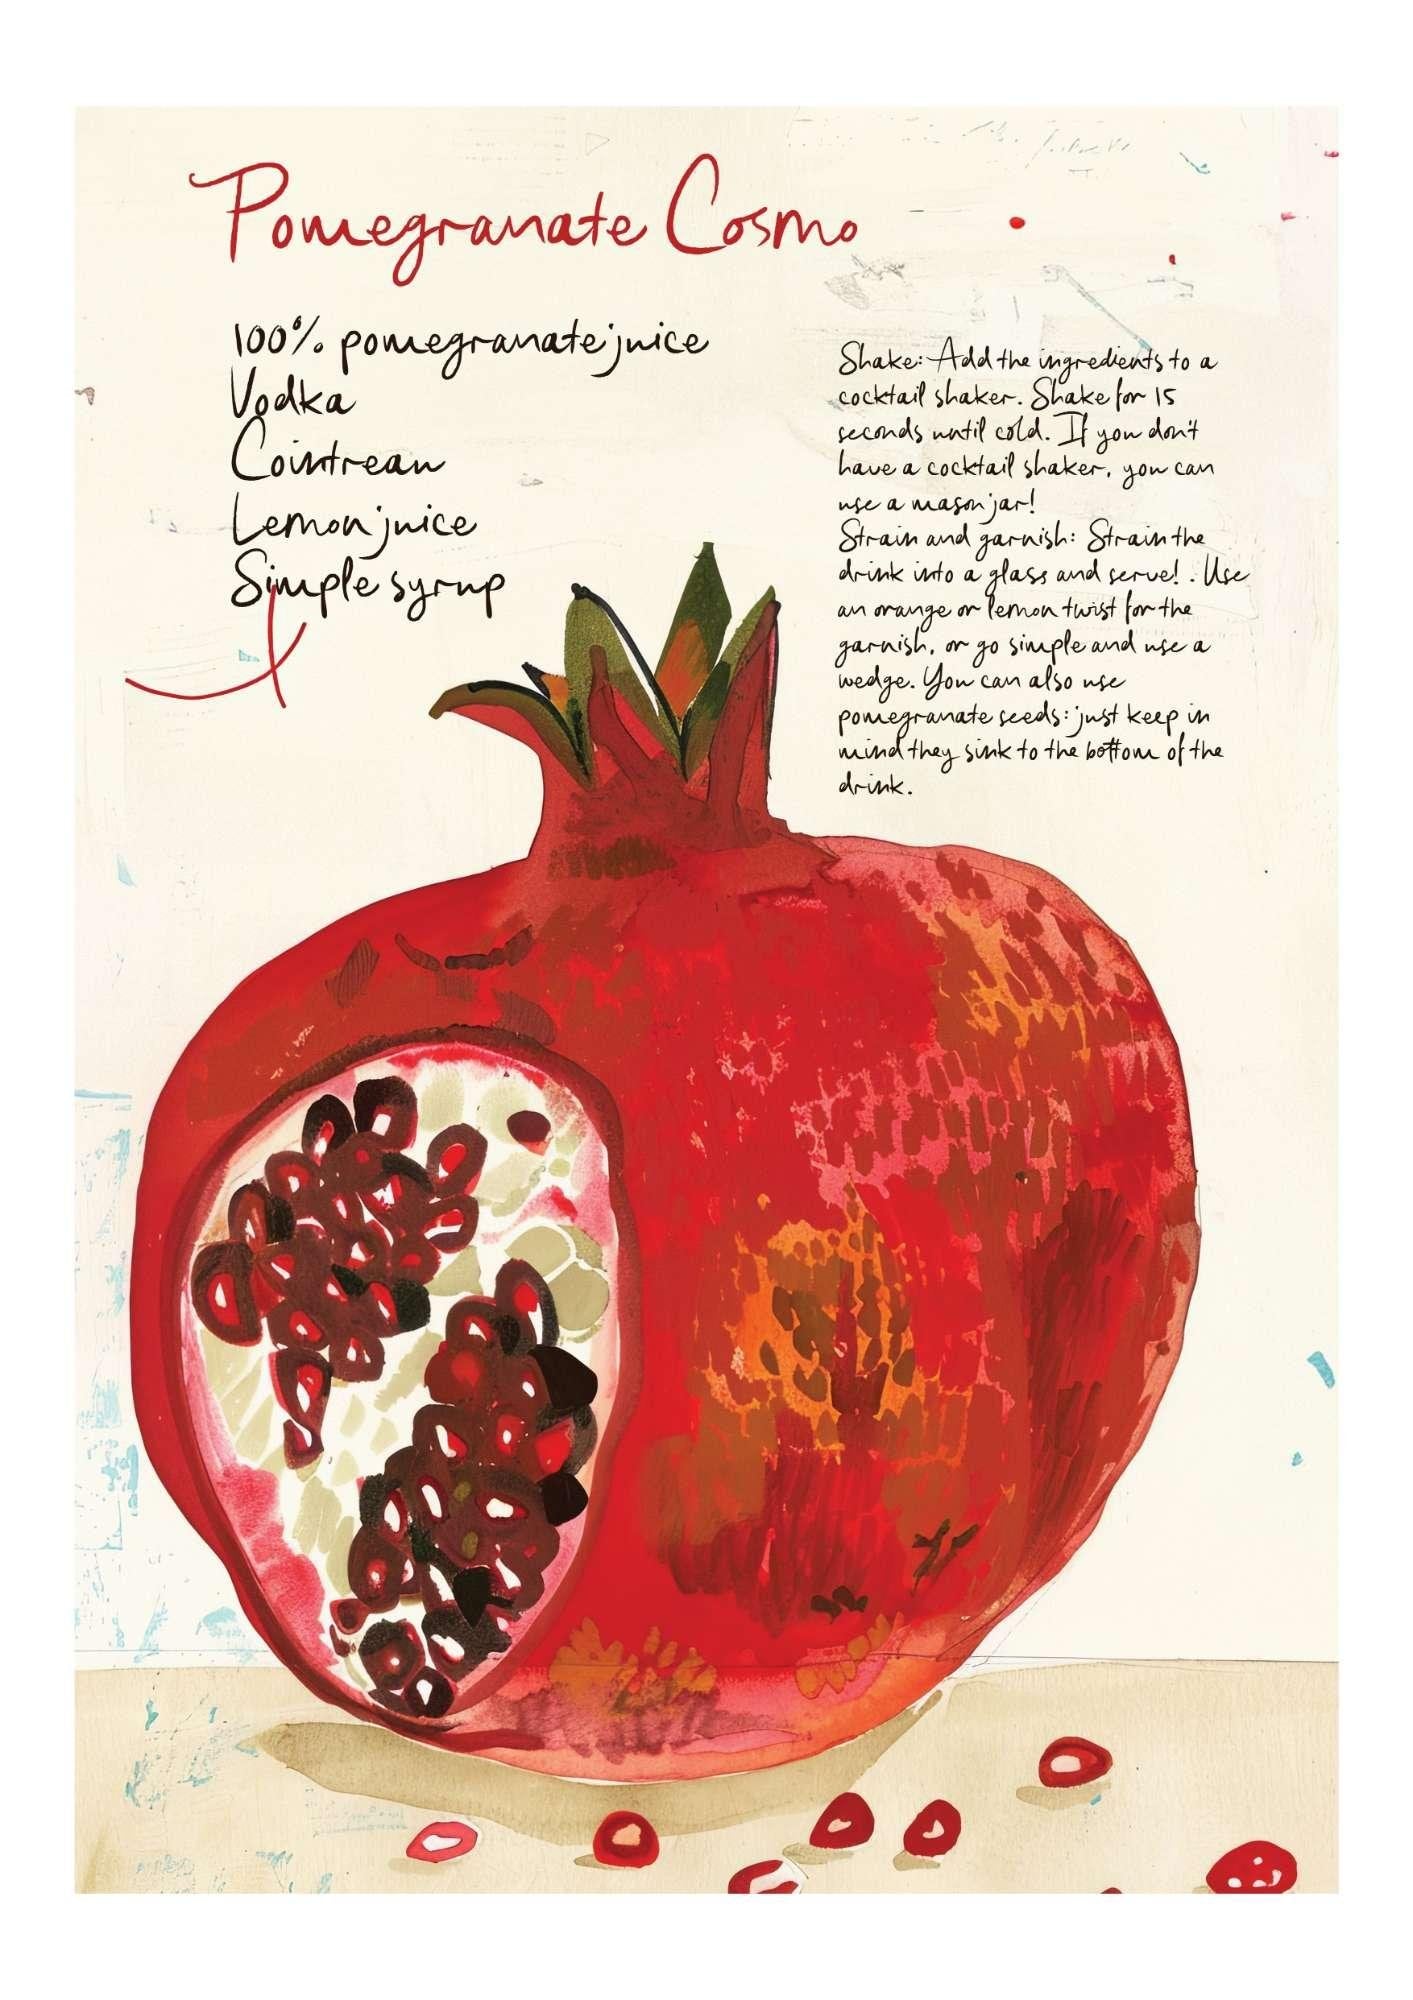 Pomegranate Cosmo
100% pomegranate juice
Vodka
Cointreau
Lemon juice
Simple syrup
Shake: Add the ingredients to a
cocktail shaker. Shake for 15
seconds until cold. If you don't
have a cocktail shaker, you can
use a mason jar!
Strain and garnish: Strain the
drink into a glass and serve! . Use
an orange or lemon twist for the
garnish, or go simple and use a
wedge. You can also use
pomegranate seeds: just keep in
mind they sink to the bottom of the
drink.